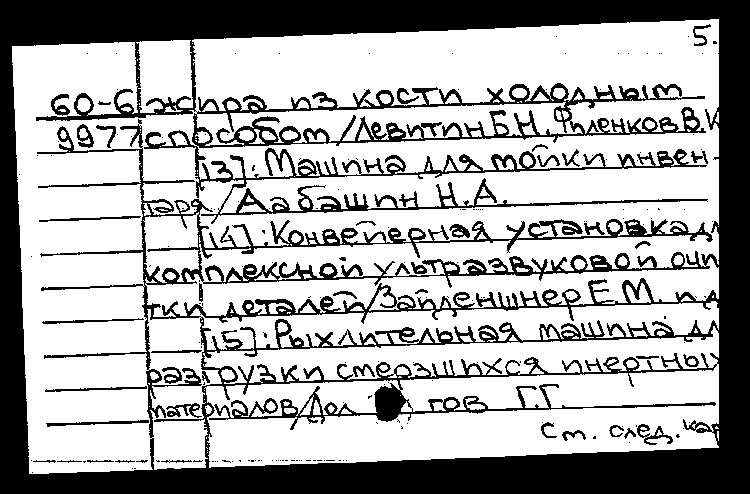 5.
60-6 жира из кости холодным
9977 способом/Левитин Б.Н., Филенков В.К
[13]: Машина для мойки инвен-
таря/Лабашин Н.А.
[14]: Конвейерная установка дл
комплексной ультразвуковой очи
тки деталей/Зайденшнер Е.М. и д
[15]: Рыхлительная машина дл
разгрузки смерзшихся инертных
материалов/Дол гов Г.Г.
См. след. кар